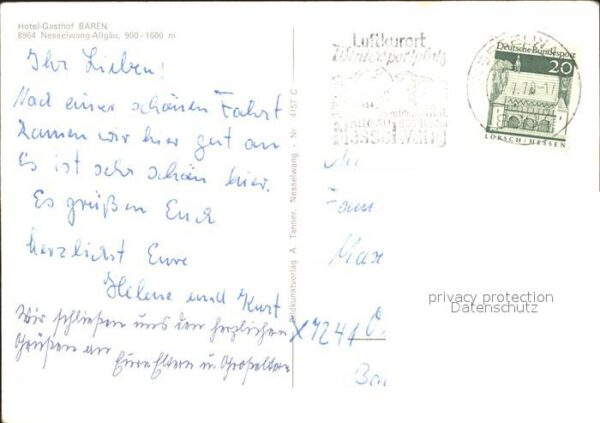 Hotel-Gasthof BÄREN
8964 Nesselwang-Allgäu, 900-1600 m
Ihr Lieben!
Nach einer schönen Fahrt
kamen wir hier gut an
Es ist sehr schön hier.
Es grüßen Euch
herzlichst Eure
Helene und Kurt
Wir schließen uns den herzlichen
Grüßen an
Eure Eltern u. Großeltern
Kunstverlag A. Tanner, Nesselwang - Nr. 4157 C
Luftkurort
Wintersportplatz
Nesselwang
Deutsche Bundespost
20
LORSCH/HESSEN
An
Fam
Max
X7241
Privacy protection
Datenschutz